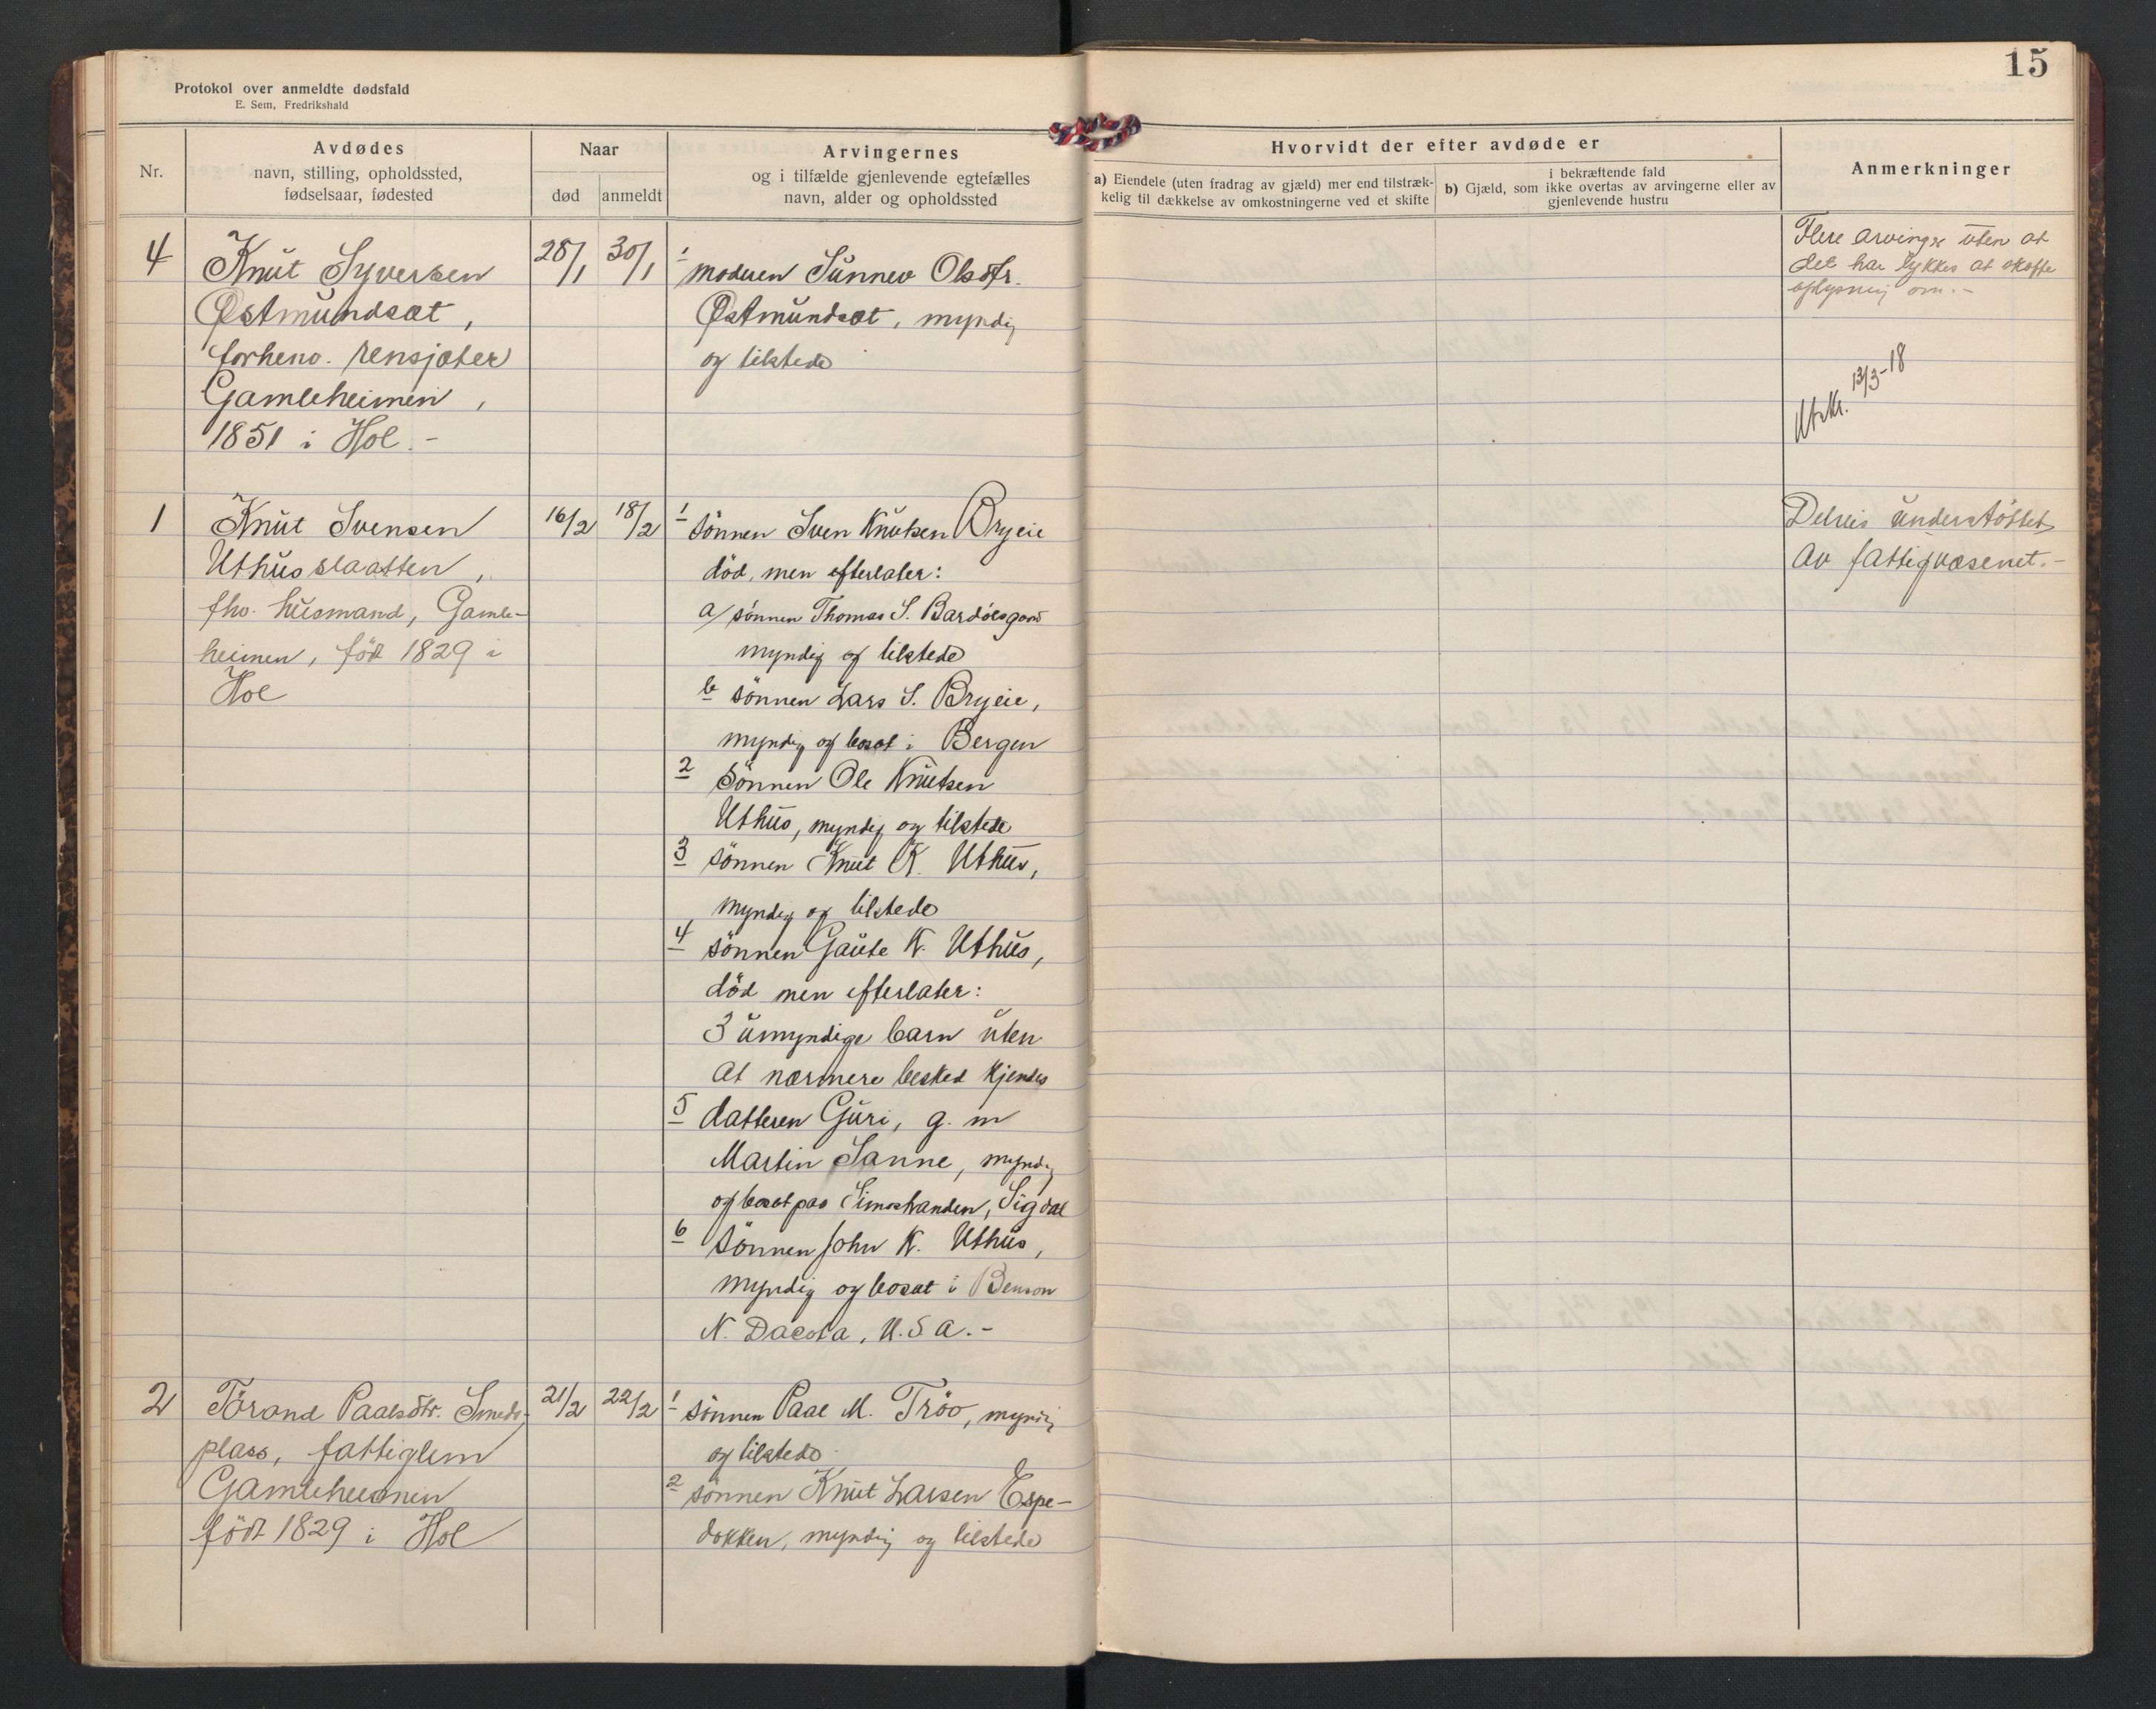 Protokol over anmeldte dødsfald
E. Sem, Fredrikshald
15
Nr.
Avdødes
navn, stilling, opholdssted,
fødselsaar, fødested
Naar
død
anmeldt
Arvingernes
og i tilfælde gjenlevende egtefælles
navn, alder og opholdssted
Hvorvidt der efter avdøde er
a) Eiendele (uten fradrag av gjæld) mer end tilstræk-
kelig til dækkelse av omkostningerne ved et skifte
i bekræftende fald
b) Gjæld, som ikke overtas av arvingerne eller av
gjenlevende hustru
Anmerkninger
4
Knut Syversen
Østmundsæt,
forhenv. rensjæter
Gamleheimen,
1851 i Hol. -
28/1
30/1
1 moderen Sunnev Olsdtr.
Østmundsæt, myndig
og tilstede
Flere arvinger uten at
det har lykkes at skaffe
oplysning om. -
Utskr. 13/3-18
1
Knut Svensen
Uthusslaatten,
fhv. husmand, Gamle-
heimen, født 1829 i
Hol
16/2
18/2
1 sønnen Sven Knutsen Bryeie
død, men efterlater:
a/ sønnen Thomas S. Bardølsgard
myndig og tilstede
b sønnen Lars S. Bryeie,
myndig og bosat i Bergen
2 sønnen Ole Knutsen
Uthus, myndig og tilstede
3 sønnen Knut K. Uthus,
myndig og tilstede
4 sønnen Gaute K. Uthus,
død men efterlater:
3 umyndige barn uten
at nærmere besked kjendes
5 datteren Guri, g. m
Martin Sanne, myndig
og bosat paa Simostranden, Sigdal
6 sønnen John K. Uthus,
myndig og bosat i Benson
N. Dacota, U.S.A. -
Delvis understøttet
av fattigvæsenet. -
2
Tørand Paalsdtr. Smeds-
plass, fattiglem
Gamleheimen
født 1829 i Hol
21/2
22/2
1 sønnen Paal M. Trøo, myndig
og tilstede
2 sønnen Knut Larsen Espe-
dokken, myndig og tilstede